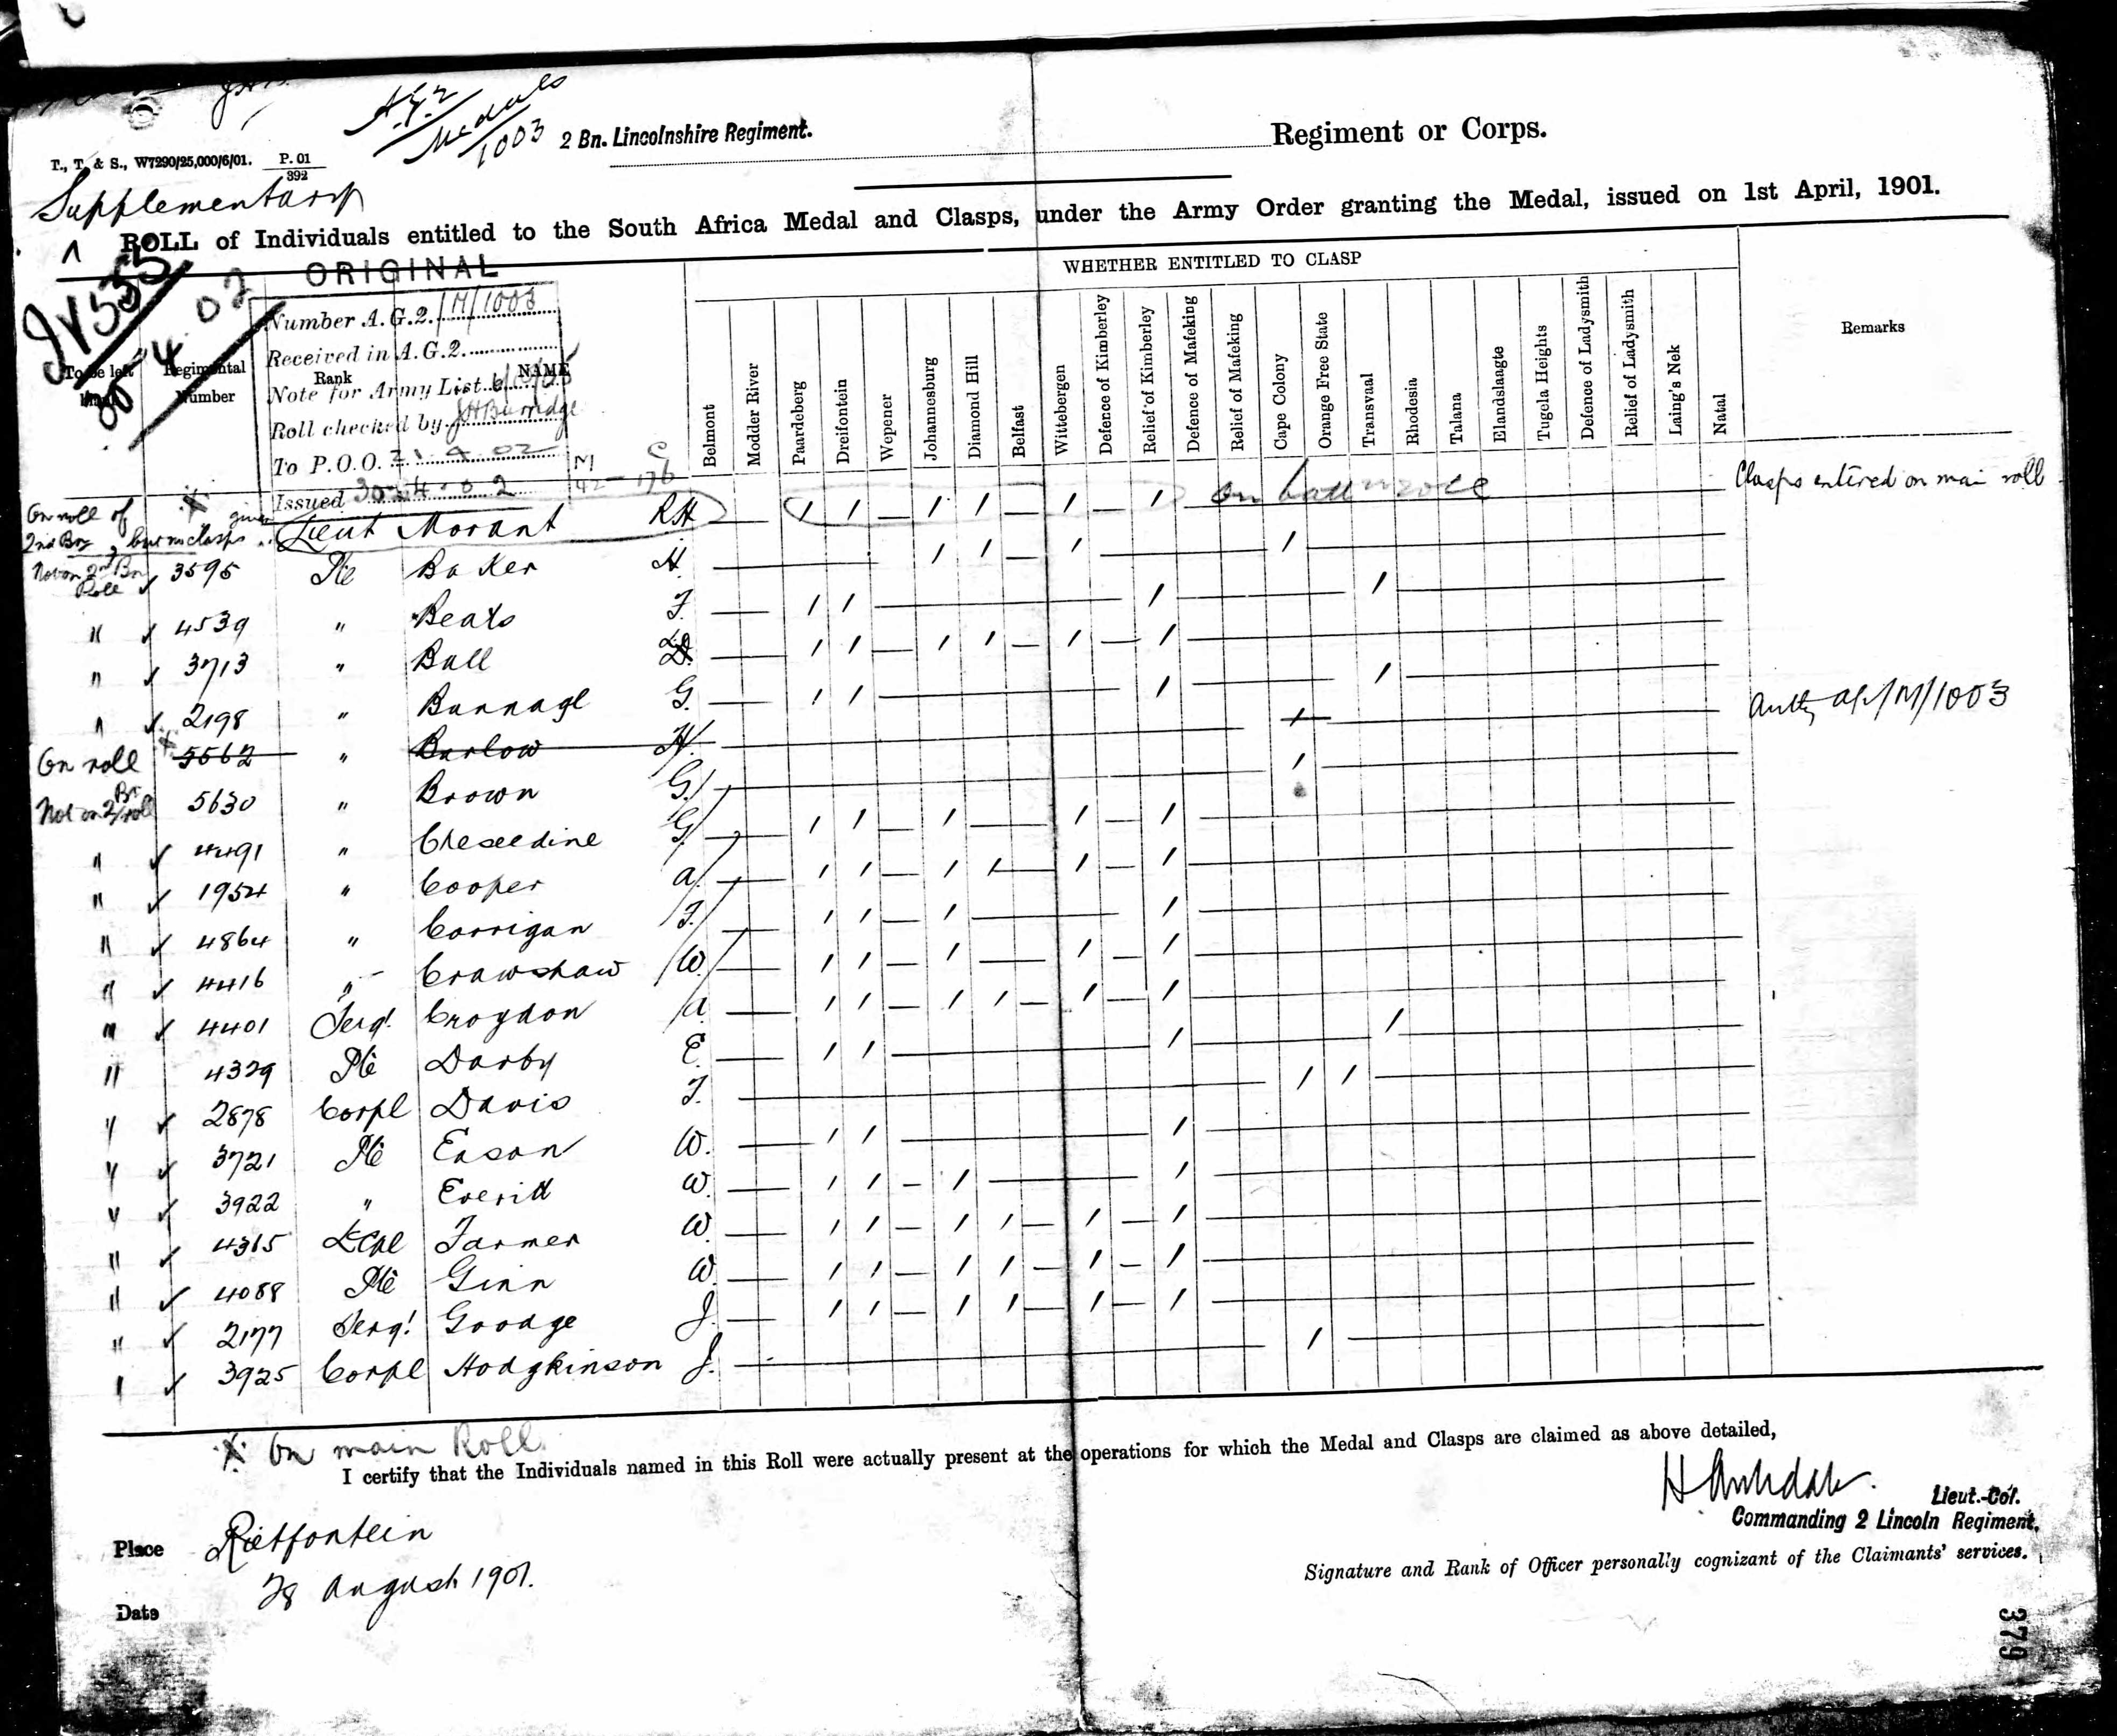 A.G.2
Medals
1003
2 Bn. Lincolnshire Regiment.
Regiment or Corps.
T., T. & S., W7290/25,000/6/01. P. 01
392
Supplementary
ROLL of Individuals entitled to the South Africa Medal and Clasps, under the Army Order granting the Medal, issued on 1st April, 1901.
ORIGINAL
Number A.G.2. M/1003
Received in A.G.2.
Note for Army List
Roll checked by
To P.O.O. 21.4.02
Issued 30.4.02
To be left blank
Regimental Number
Rank
NAME
WHETHER ENTITLED TO CLASP
Belmont
Modder River
Paardeberg
Dreifontein
Wepener
Johannesburg
Diamond Hill
Belfast
Wittebergen
Defence of Kimberley
Relief of Kimberley
Defence of Mafeking
Relief of Mafeking
Cape Colony
Orange Free State
Transvaal
Rhodesia
Talana
Elandslaagte
Tugela Heights
Defence of Ladysmith
Relief of Ladysmith
Laing's Nek
Natal
Remarks
On roll of 2nd Bn, but no clasps given Lieut Morant RH / / — / / — / / Clasps entered on main roll
Not on 2nd Bn Roll ✓ 3595 Pte Baker H. / / — / /
" ✓ 4539 " Beats F. / / / /
" ✓ 3713 " Bull / / — / / — / — /
" ✓ 2198 " Bunnage G. / / / /
On roll 5562 " Barlow H. / Authy AG/M/1003
Not on 2/Bn roll 5630 " Brown G. /
" ✓ 4491 " Cheseldine G. / / — / — / — /
" ✓ 1954 " Cooper A. / / — / / — / — /
" ✓ 4864 " Corrigan F. / / — / — /
" ✓ 4416 " Crawshaw W. / / — / — / — /
" ✓ 4401 Sergt. Croydon A. / / — / / — / — /
" 4329 Pte Darby E. / / / /
" ✓ 2878 Corpl Davis F. / /
" ✓ 3721 Pte Eason W. / / /
" ✓ 3922 " Everitt W. / / — / — /
" ✓ 4365 L Cpl Farmer W. / / — / / — / — /
" ✓ 4088 Pte Ginn W. / / — / / — / — /
" ✓ 2177 Sergt. Goodge J. / / — / / — / — /
" ✓ 3925 Corpl Hodgkinson J. /
X On main Roll.
I certify that the Individuals named in this Roll were actually present at the operations for which the Medal and Clasps are claimed as above detailed,
Lieut.-Col.
Commanding 2 Lincoln Regiment.
Place Rietfontein
Signature and Rank of Officer personally cognizant of the Claimants' services.
Date 28 August 1901.
379